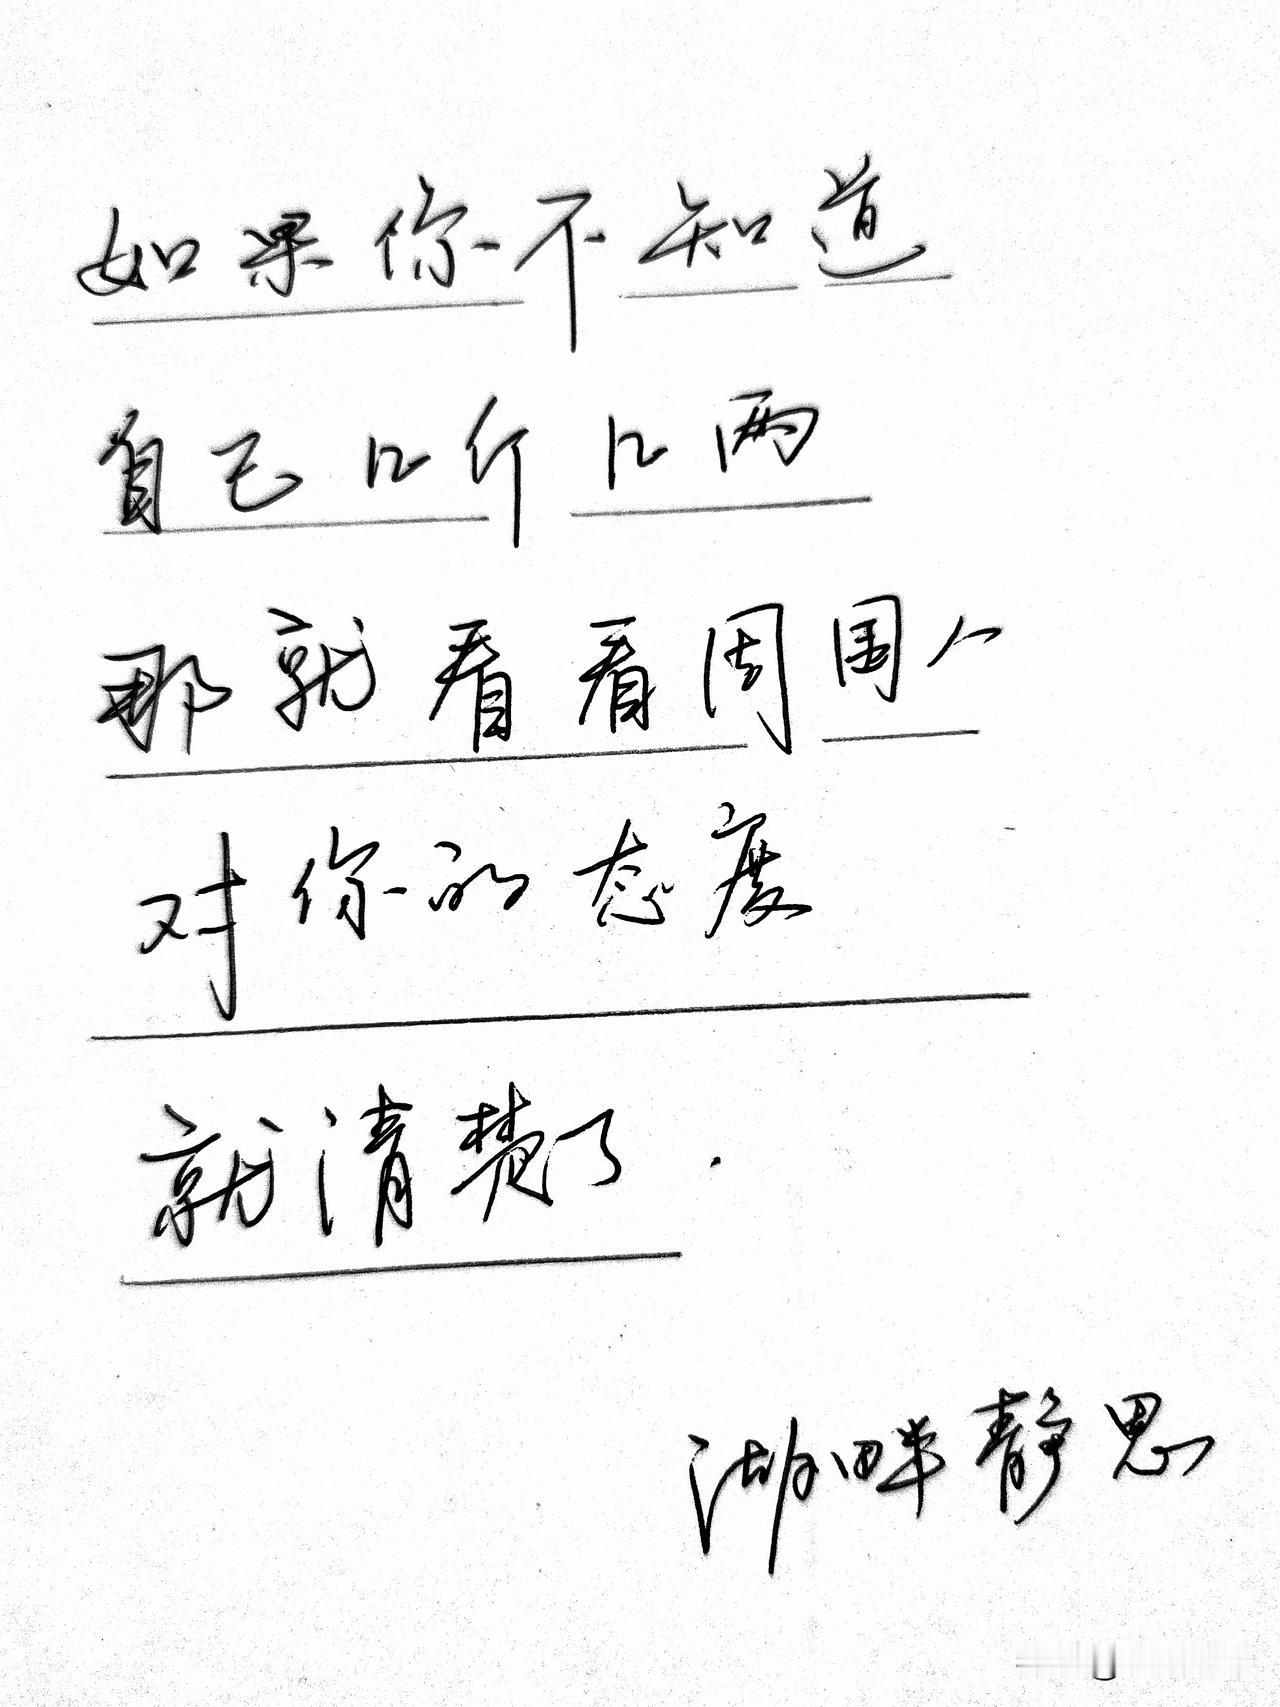 如果你不知道
自己几斤几两
那就看看周围人
对你的态度
就清楚了.
湖畔静思